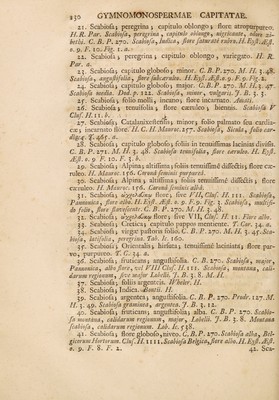 230 GYMNOMONOSPERMAE CAPITATAE.
21. Scabiosa; peregrina; capitulo oblongo; flore atropurpureo.
H. R. Par. Scabiosa, peregrina, capitulo oblongo, nigricante, odore zi-
bethi. C. B. P. 270. Scabiosa, Indica, flore saturatè rubro. H. Eyst. Æst.
o. 9. F. 10. Fig. 1.
22. Scabiosa; peregrina; capitulo oblongo, variegato. H. R.
Par.
23. Scabiosa; capitulo globoso; minor. C. B. P. 270. M. H. 3. 48.
Scabiosa, angustifolia, flore subcaruleo. H. Eyst. Æst. o. 9. F. 9. Fig. 2.
24. Scabiosa; capitulo globoso; major. C. B. P. 270. M. H. 3. 47.
Scabiosa media. Dod. p. 122. Scabiosa, minor, vulgaris. J. B. 3. 3.
25. Scabiosa; folio molli, incano; flore incarnato.
26. Scabiosa; tenuifolia; flore caruleo; biennis. Scabiosa V
Clus. H. 11. b.
27. Scabiosa; Catalaunixensis; minor; folio palmato seu canlis-
28. Scabiosa; capitulo globoso; foliis in tenuissimas lacinias divisis.
C. B. P. 271. M. H. 3. 48. Scabiosa tenuifolia, flore caruleo. H. Eyst.
Æst. o. 9. F. 10. F. 3. b.
29. Scabiosa; Alpina; altissima; foliis tenuissimè dissectis; flore cæ-
ruleo. H. Mauroc. 156. Carui femini purpurei.
30. Scabiosa; Alpina; altissima; foliis tenuissimè dissectis; flore
cæruleo. H. Mauroc. 156. Carui femini albi.
31. Scabiosa; flore; sive VII, Clus. H. 111. Scabiosa,
Pannonica, flore albo. H. Eyst. Æst. o. 9. F. 9. Fig. 3. Scabiosa, multifi-
do folio, flore flavescente. C. B. P. 270. M. H. 3. 48.
32. Scabiosa; flore; sive VII, Clus. H. 11. Flore albo.
33. Scabiosa; Cretica; capitulo pappos mentiente. T. Cor. 34.
34. Scabiosa; virgæ pastoris folio. C. B. P. 270. M. H. 3. 45. Sca-
biosa, latifolia, peregrina. Tab. Ic. 160.
35. Scabiosa; Orientalis; hirsuta; tenuissimè laciniata; flore par-
vo, purpureo. T. C. 34. a.
36. Scabiosa; fruticans; angustifolia. C. B. 270. Scabiosa, major,
Pannonica, albo flore, vel VIII Clus. H. 111. Scabiosa, montana, cali-
darum regionum, sive major Lobelii. J. B. 3. 8. M. H.
37. Scabiosa; foliis argenteis. Wheler. H.
38. Scabiosa; Indica. H.
39. Scabiosa; argentea; angustifolia. C. B. P. 270. Prodr. 127. M.
H. 3. 49. Scabiosa graminea, argentea. J. B. 3. 12.
40. Scabiosa; fruticans; angustifolia; alba. C. B. P. 270. Scabio-
sa montana, calidarum regionum, major, Lobelii. J. B. 3. 8. Montana
scabiosa, calidarum regionum. Lob. Ic. 538.
41. Scabiosa; flore globoso, niveo. C. B. P. 270. Scabiosa alba, Bel-
gicorum Hortorum. Clus. H. 1111. Scabiosa Belgica, flore albo. H. Eyst. Æst.
o. 9. F. 8. F. 2. 42. Sca-